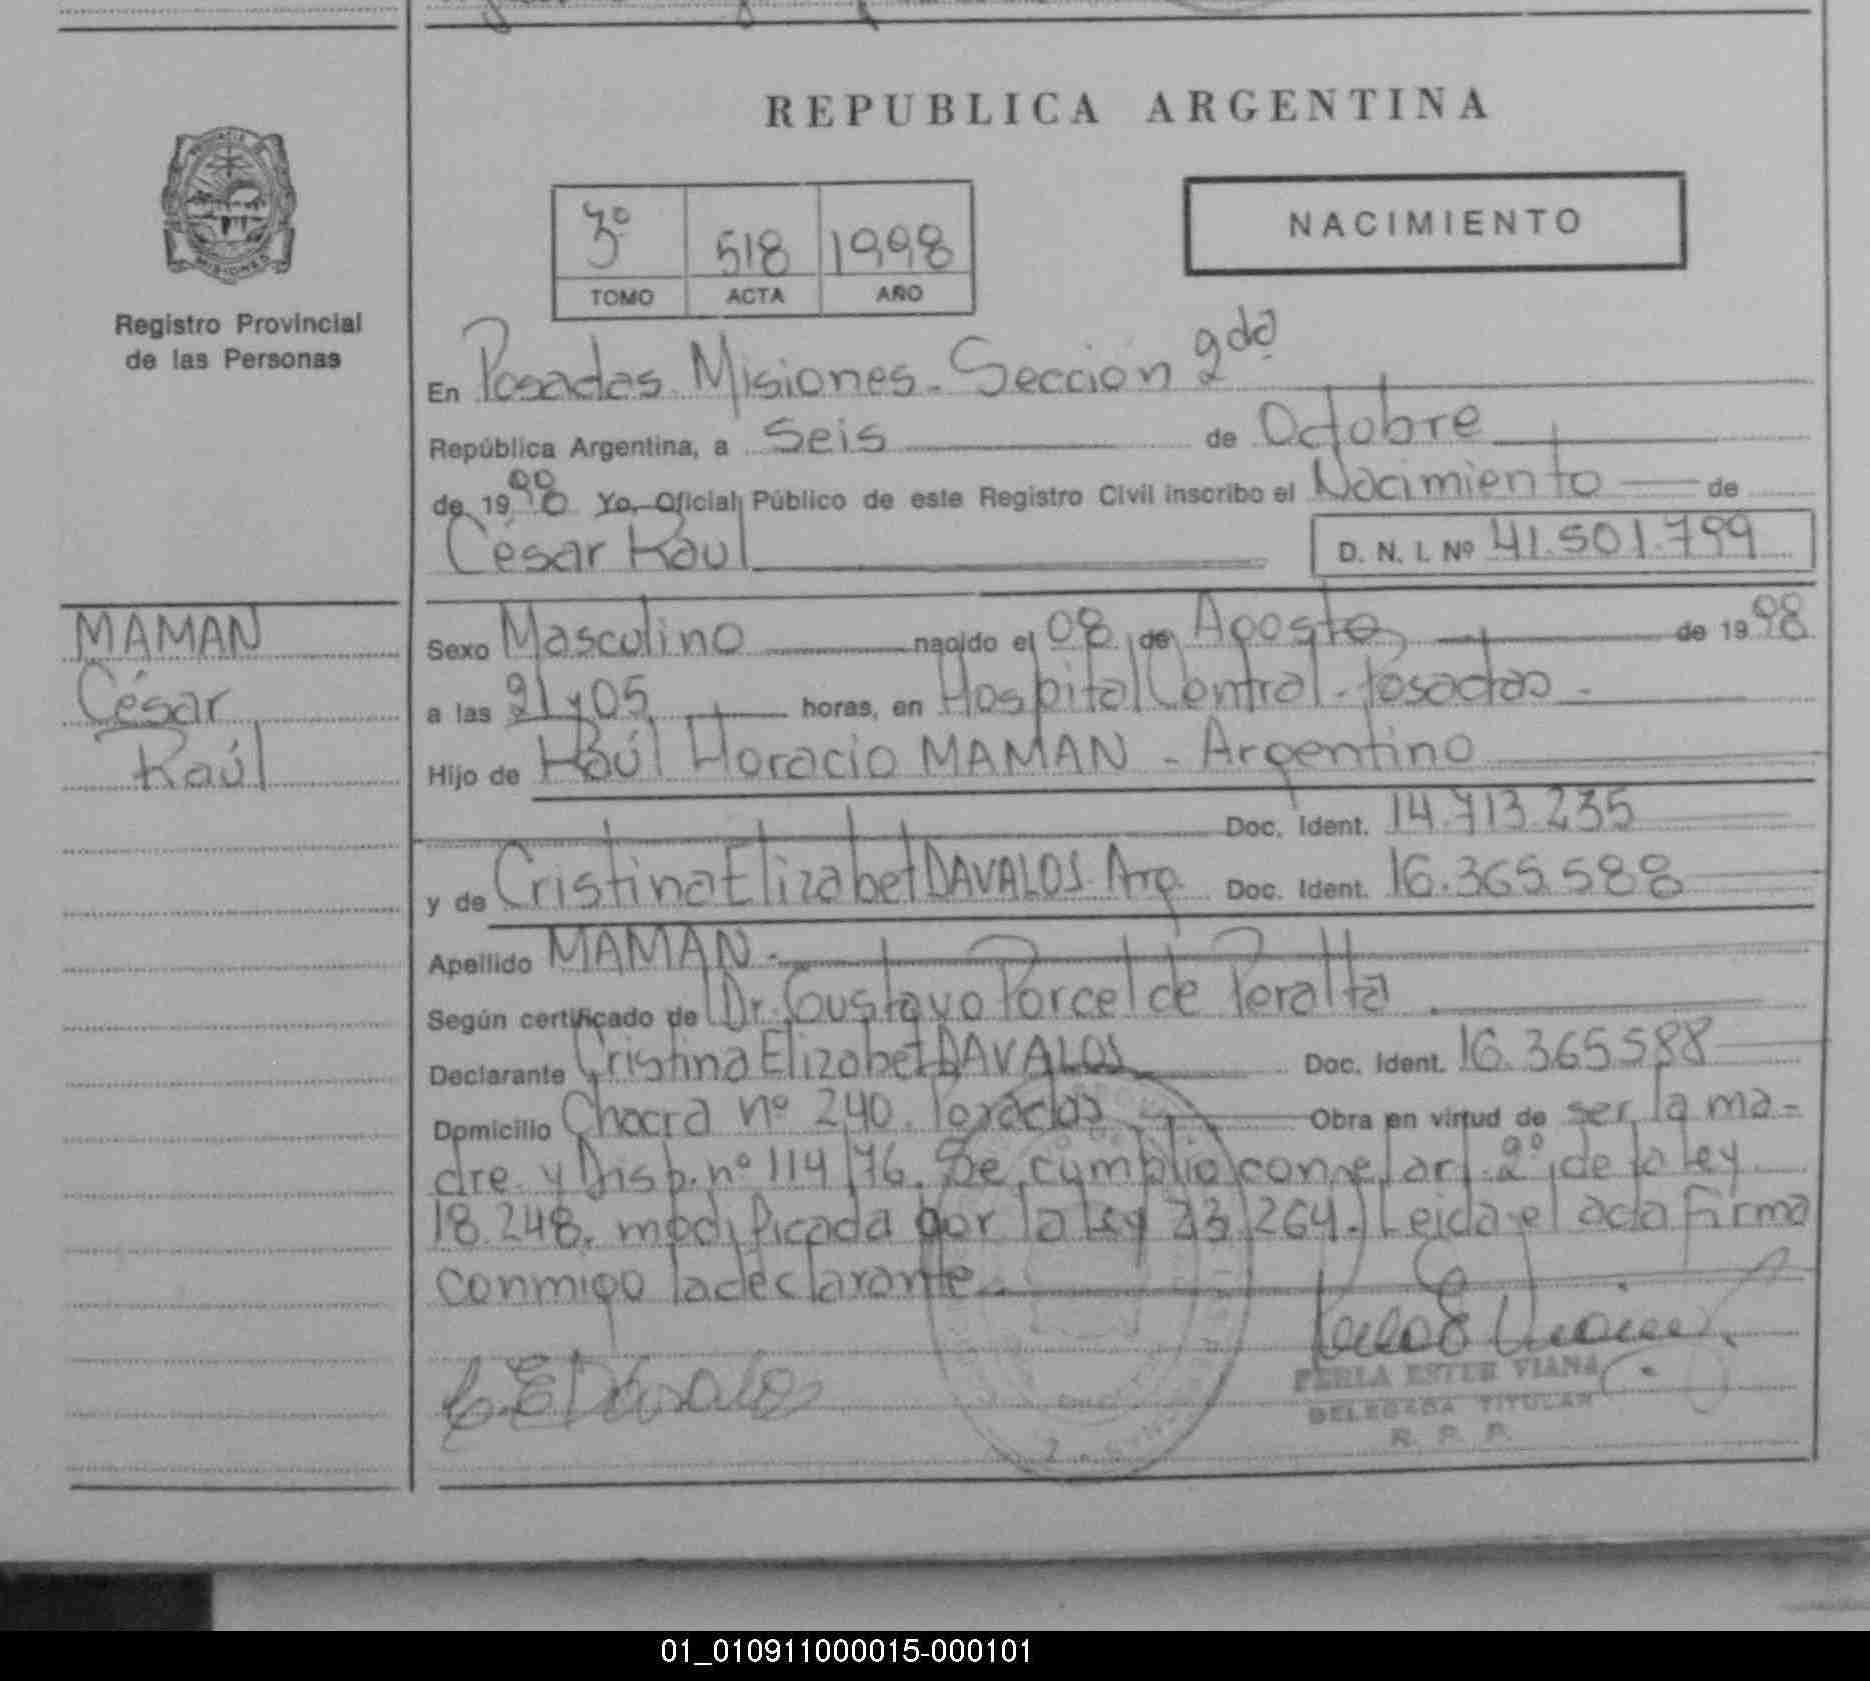 REPUBLICA ARGENTINA
PROVINCIA DE MISIONES
Registro Provincial
de las Personas
3º 518 1998
TOMO ACTA AÑO
NACIMIENTO
En Posadas Misiones - Sección 2da
República Argentina, a Seis de Octubre
de 1998 Yo, Oficial Público de este Registro Civil inscribo el Nacimiento de
César Raúl D. N. I. Nº 41.501.799
MAMAN
César
Raúl
Sexo Masculino nacido el 08 de Agosto de 1998
a las 21 y 05 horas, en Hospital Central - Posadas -
Hijo de Raúl Horacio MAMAN - Argentino
Doc. Ident. 14.713.235
y de Cristina Elizabet DAVALOS Arg. Doc. Ident. 16.365.588
Apellido MAMAN -
Según certificado de Dr. Gustavo Porcel de Peralta
Declarante Cristina Elizabet DAVALOS Doc. Ident. 16.365588
Domicilio Chacra nº 240. Posadas Obra en virtud de ser la ma-
dre y Disp. nº 114/76. Se cumplio con el art. 2º de la ley
18.248. modificada por la ley 23.264. Leida el acta firma
conmigo la declarante.
C. E. Davalos
PERLA ESTER VIANA
DELEGADA TITULAR
R. P. P.
01_010911000015-000101